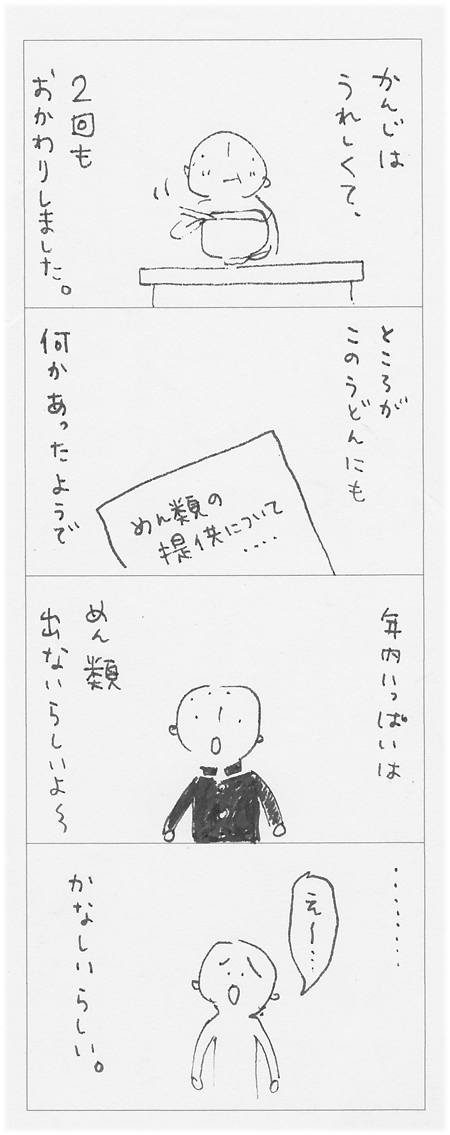 かんじは
うれしくて、
2回も
おかわりしました。
ところが
このうどんにも
めん類の
提供について
‥‥
何かあったようで
年内いっぱいは
めん類
出ないらしいよ〜
‥‥‥‥
え〜‥
かなしいらしい。